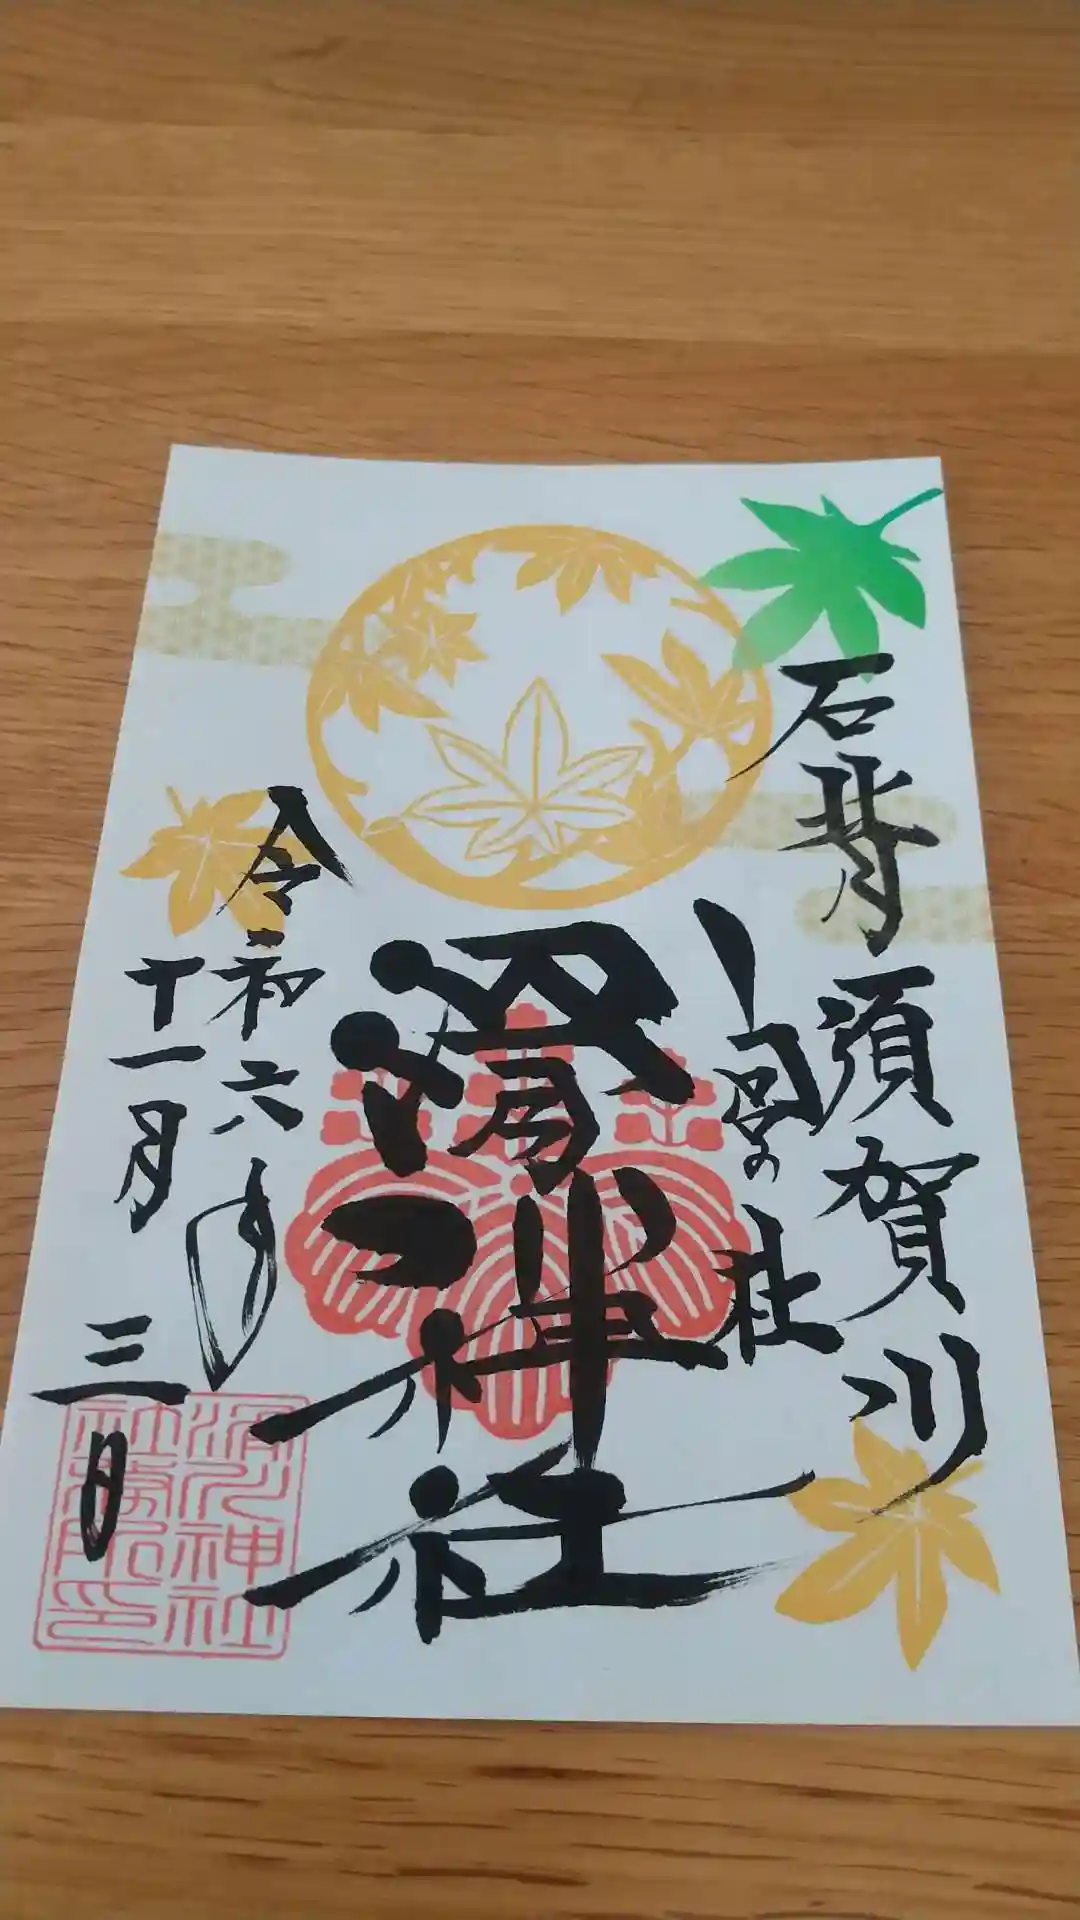 石背 須賀川
の社
滑川神社
令和六年
十一月三日
滑川神社
社務所印